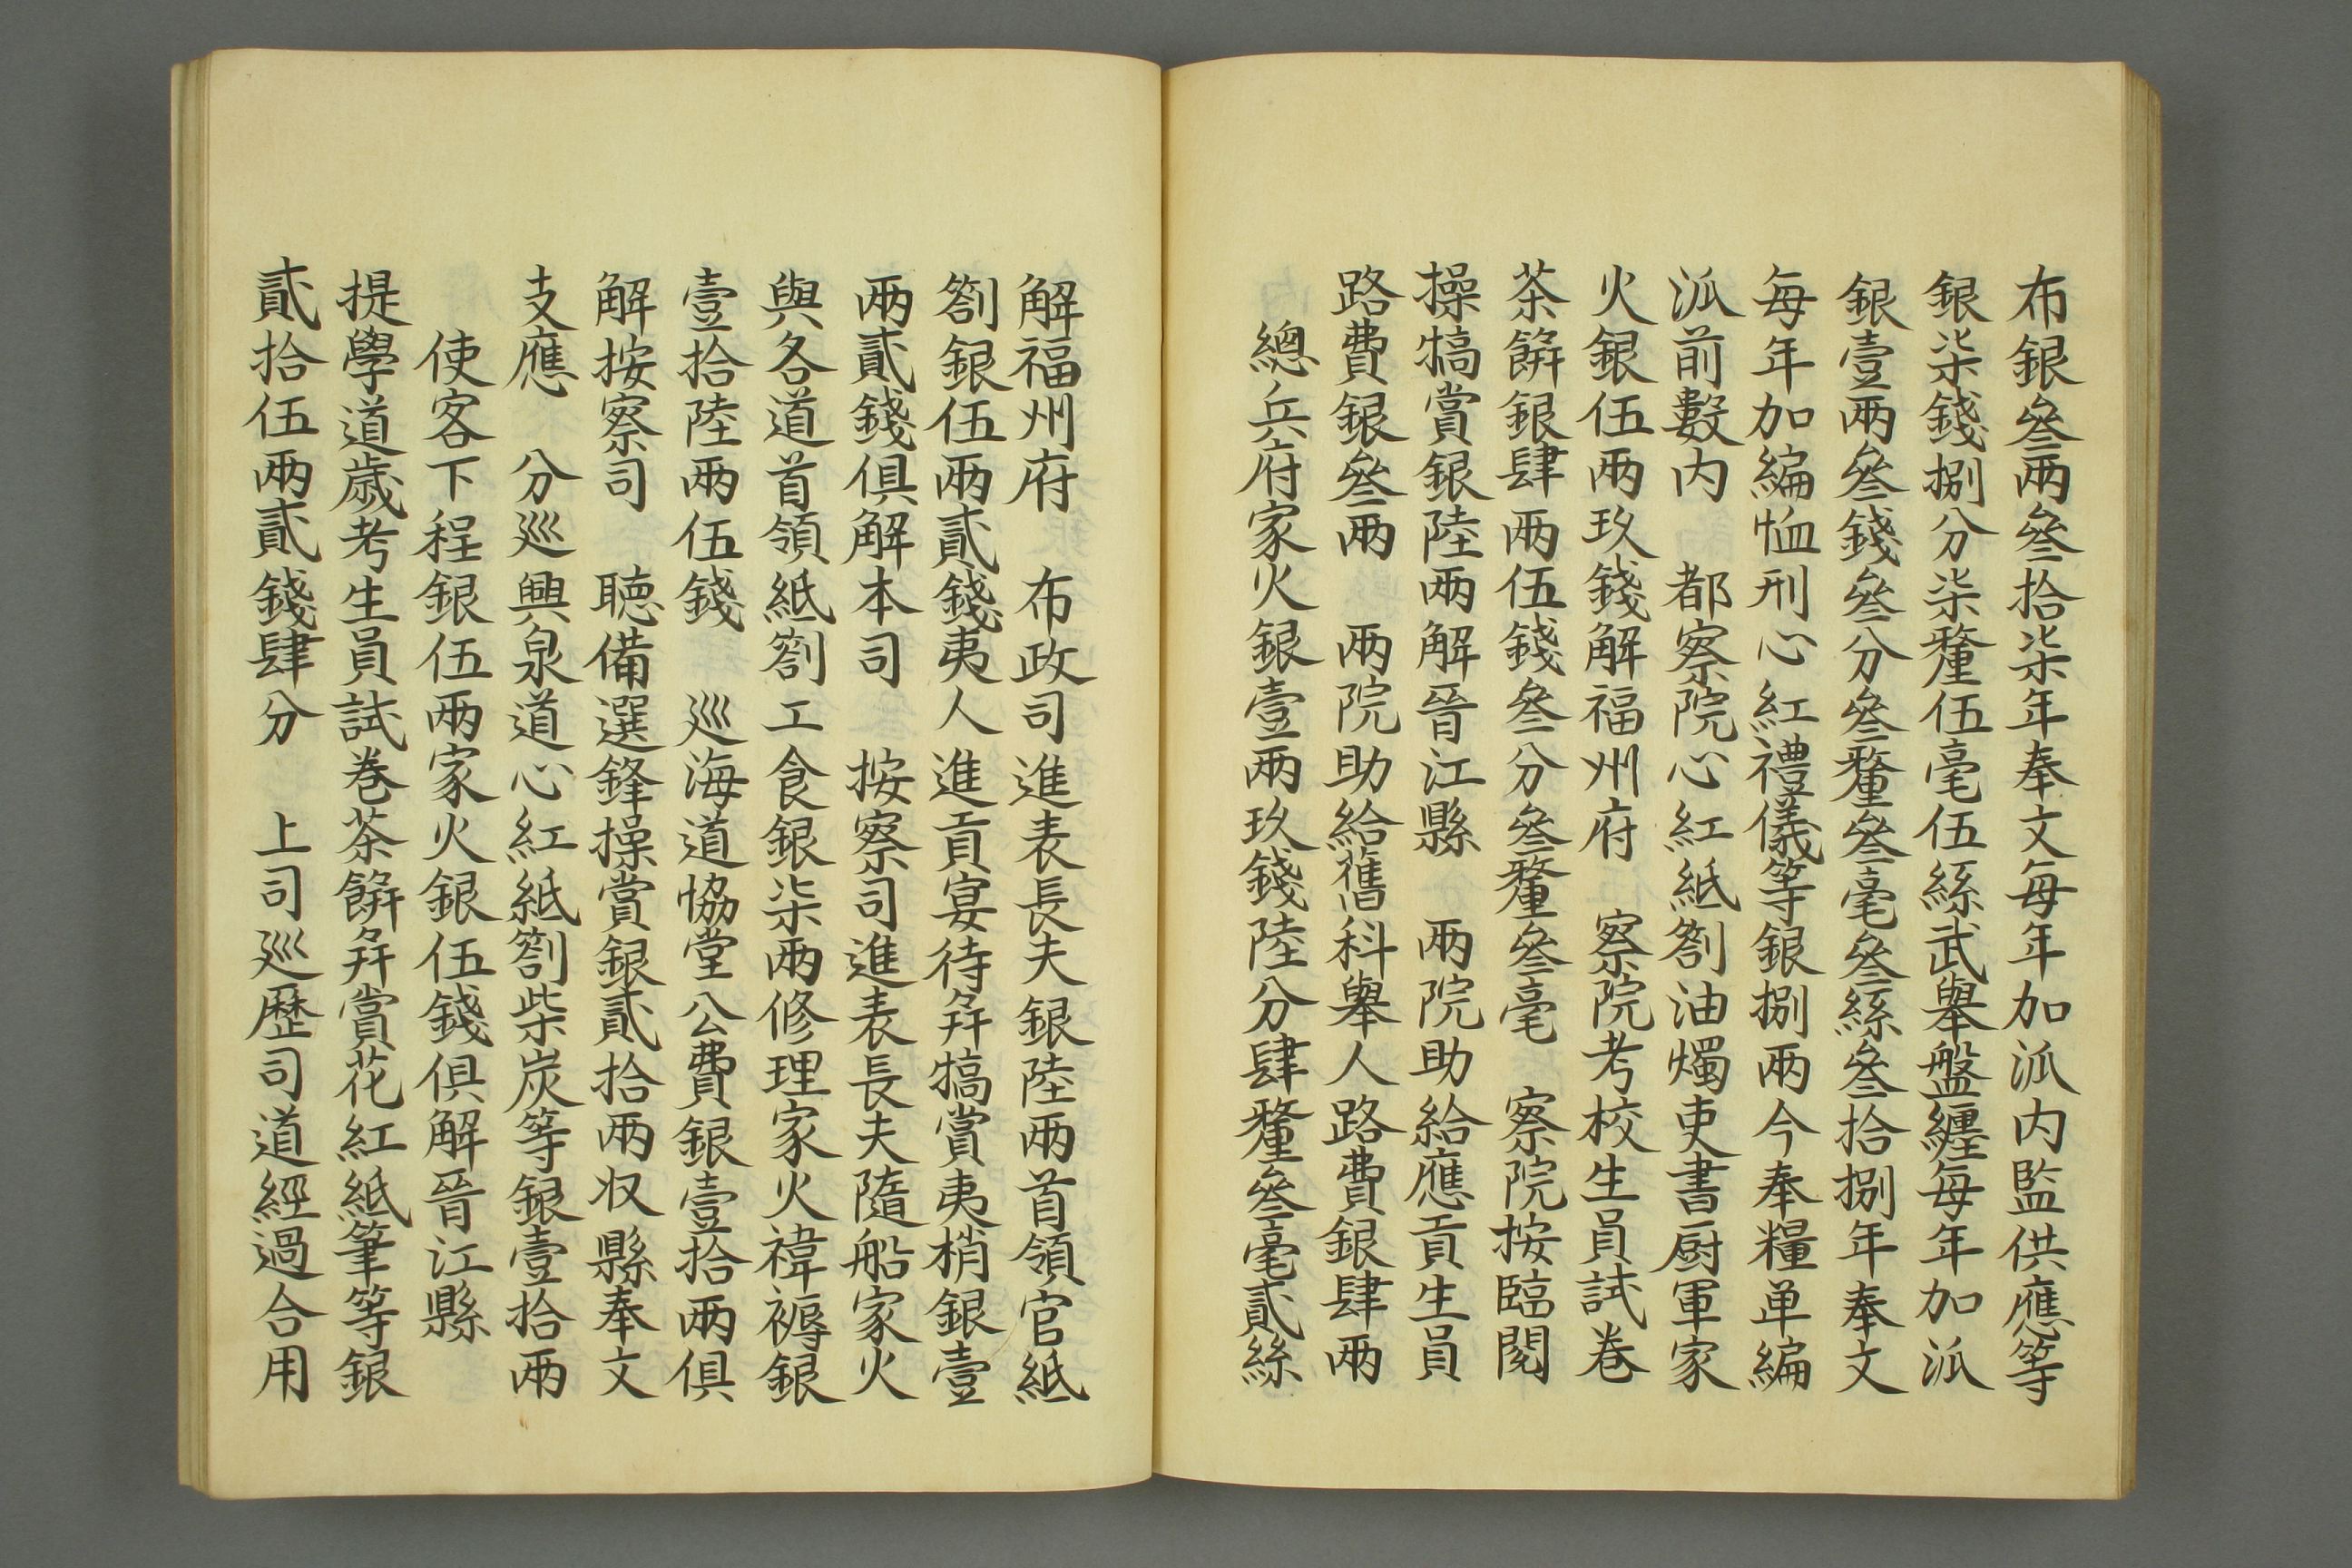 布銀叄兩叄拾柒年奉文每年加派内監供應等
銀柒錢捌分柒釐伍毫伍絲武舉盤纏每年加派
銀壹兩叄錢叄分叄釐叄毫叄絲叄拾捌年奉文
每年加編恤刑心紅禮儀等銀捌兩今奉糧单編
派前數内　都察院心紅紙劄油燭吏書厨軍家
火銀伍兩玖錢解福州府　察院考校生員試卷
茶餅銀肆兩伍錢叄分叄釐叄毫　察院按臨閱
操犒賞銀陸兩解晉江縣　兩院助給應貢生員
路費銀叄兩　兩院助給舊科舉人路費銀肆兩
總兵府家火銀壹兩玖錢陸分肆釐叄毫貳絲
解福州府　布政司進表長夫銀陸兩首領官紙
劄銀伍兩貳錢夷人進貢宴待并犒賞夷梢銀壹
兩貳錢俱解本司　按察司進表長夫隨船家火
與各道首領紙劄工食銀柒兩修理家火褘褥銀
壹拾陸兩伍錢　巡海道恊堂公費銀壹拾兩俱
解按察司　聴備選鋒操賞銀貳拾兩収縣奉文
支應　分巡興泉道心紅紙劄柴炭等銀壹拾兩
使客下程銀伍兩家火銀伍錢俱解晉江縣
提學道歲考生員試卷茶餅并賞花紅紙筆等銀
貳拾伍兩貳錢肆分　上司巡歷司道經過合用